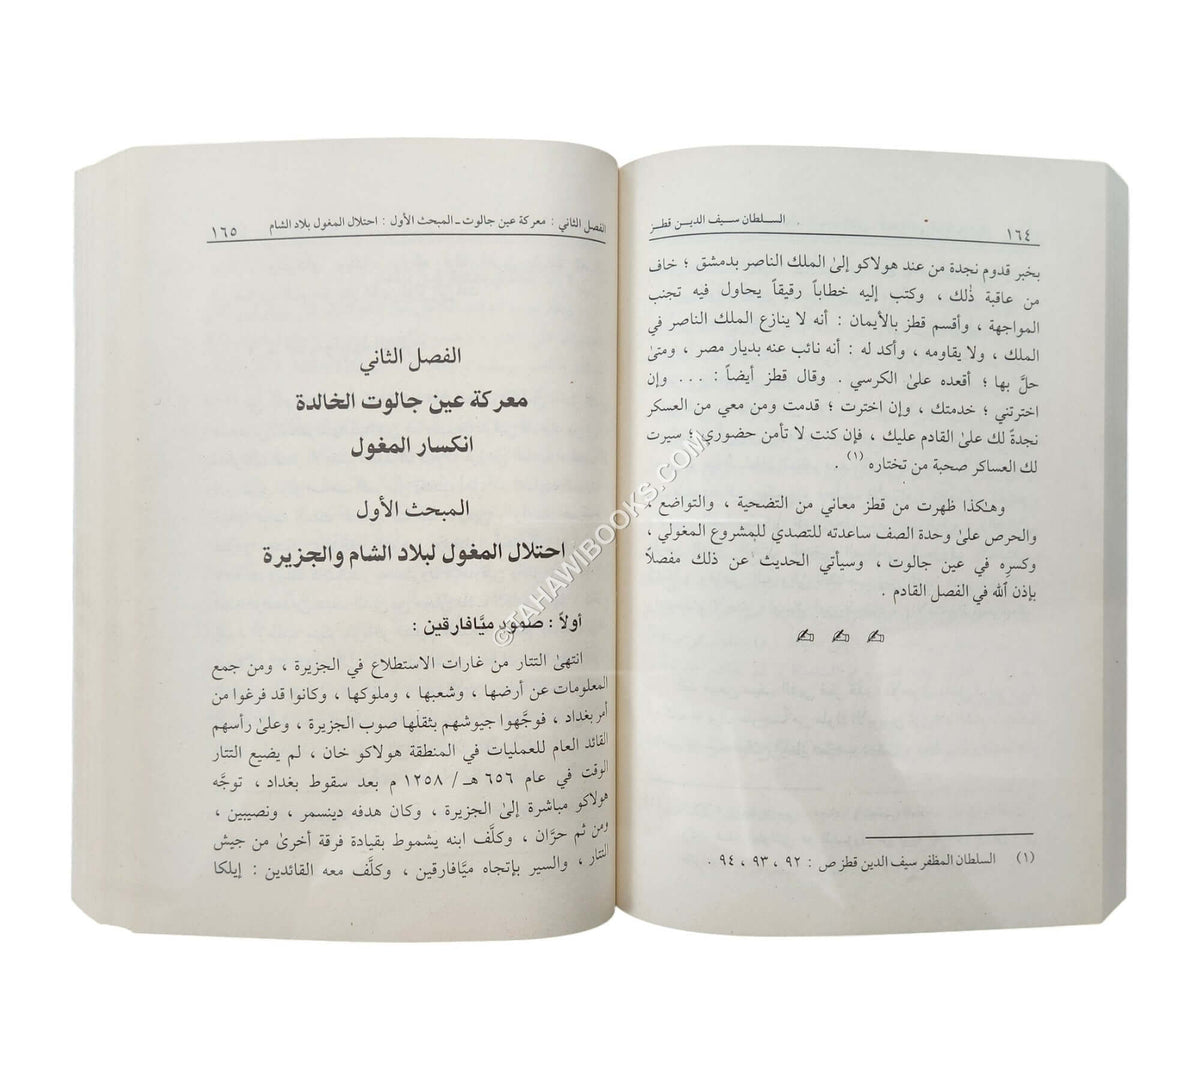 ١٦٤ السلطان سيف الدين قطز
بخبر قدوم نجدة من عند هولاكو إلىٰ الملك الناصر بدمشق ؛ خاف
من عاقبة ذٰلك ، وكتب إليه خطاباً رقيقاً يحاول فيه تجنب
المواجهة ، وأقسم قطز بالأيمان : أنه لا ينازع الملك الناصر في
الملك ، ولا يقاومه ، وأكد له : أنه نائب عنه بديار مصر ، ومتىٰ
حلَّ بها ؛ أقعده علىٰ الكرسي . وقال قطز أيضاً : . . . وإن
اخترتني ؛ خدمتك ، وإن اخترت ؛ قدمت ومن معي من العسكر
نجدةً لك علىٰ القادم عليك ، فإن كنت لا تأمن حضوري ؛ سيرت
لك العساكر صحبة من تختاره (١) .
وهٰكذا ظهرت من قطز معاني من التضحية ، والتواضع ،
والحرص علىٰ وحدة الصف ساعدته للتصدي للمشروع المغولي ،
وكسرِه في عين جالوت ، وسيأتي الحديث عن ذلك مفصلاً
بإذن الله في الفصل القادم .
(١) السلطان المظفر سيف الدين قطز ص : ٩٢ ، ٩٣ ، ٩٤ .
الفصل الثاني : معركة عين جالوت ـ المبحث الأول : احتلال المغول بلاد الشام ١٦٥
الفصل الثاني
معركة عين جالوت الخالدة
انكسار المغول
المبحث الأول
احتلال المغول لبلاد الشام والجزيرة
أولاً : صمود ميَّافارقين :
انتهىٰ التتار من غارات الاستطلاع في الجزيرة ، ومن جمع
المعلومات عن أرضها ، وشعبها ، وملوكها ، وكانوا قد فرغوا من
أمر بغداد ، فوجَّهوا جيوشهم بثقلها صوب الجزيرة ، وعلىٰ رأسهم
القائد العام للعمليات في المنطقة هولاكو خان ، لم يضيع التتار
الوقت في عام ٦٥٦ هـ / ١٢٥٨ م بعد سقوط بغداد ، توجَّه
هولاكو مباشرة إلىٰ الجزيرة ، وكان هدفه دينسمر ، ونصيبين ،
ومن ثم حرَّان ، وكلَّف ابنه يشموط بقيادة فرقة أخرىٰ من جيش
التتار ، والسير بإتجاه ميَّافارقين ، وكلَّف معه القائدين : إيلكا
©TAHAWIBOOKS.COM